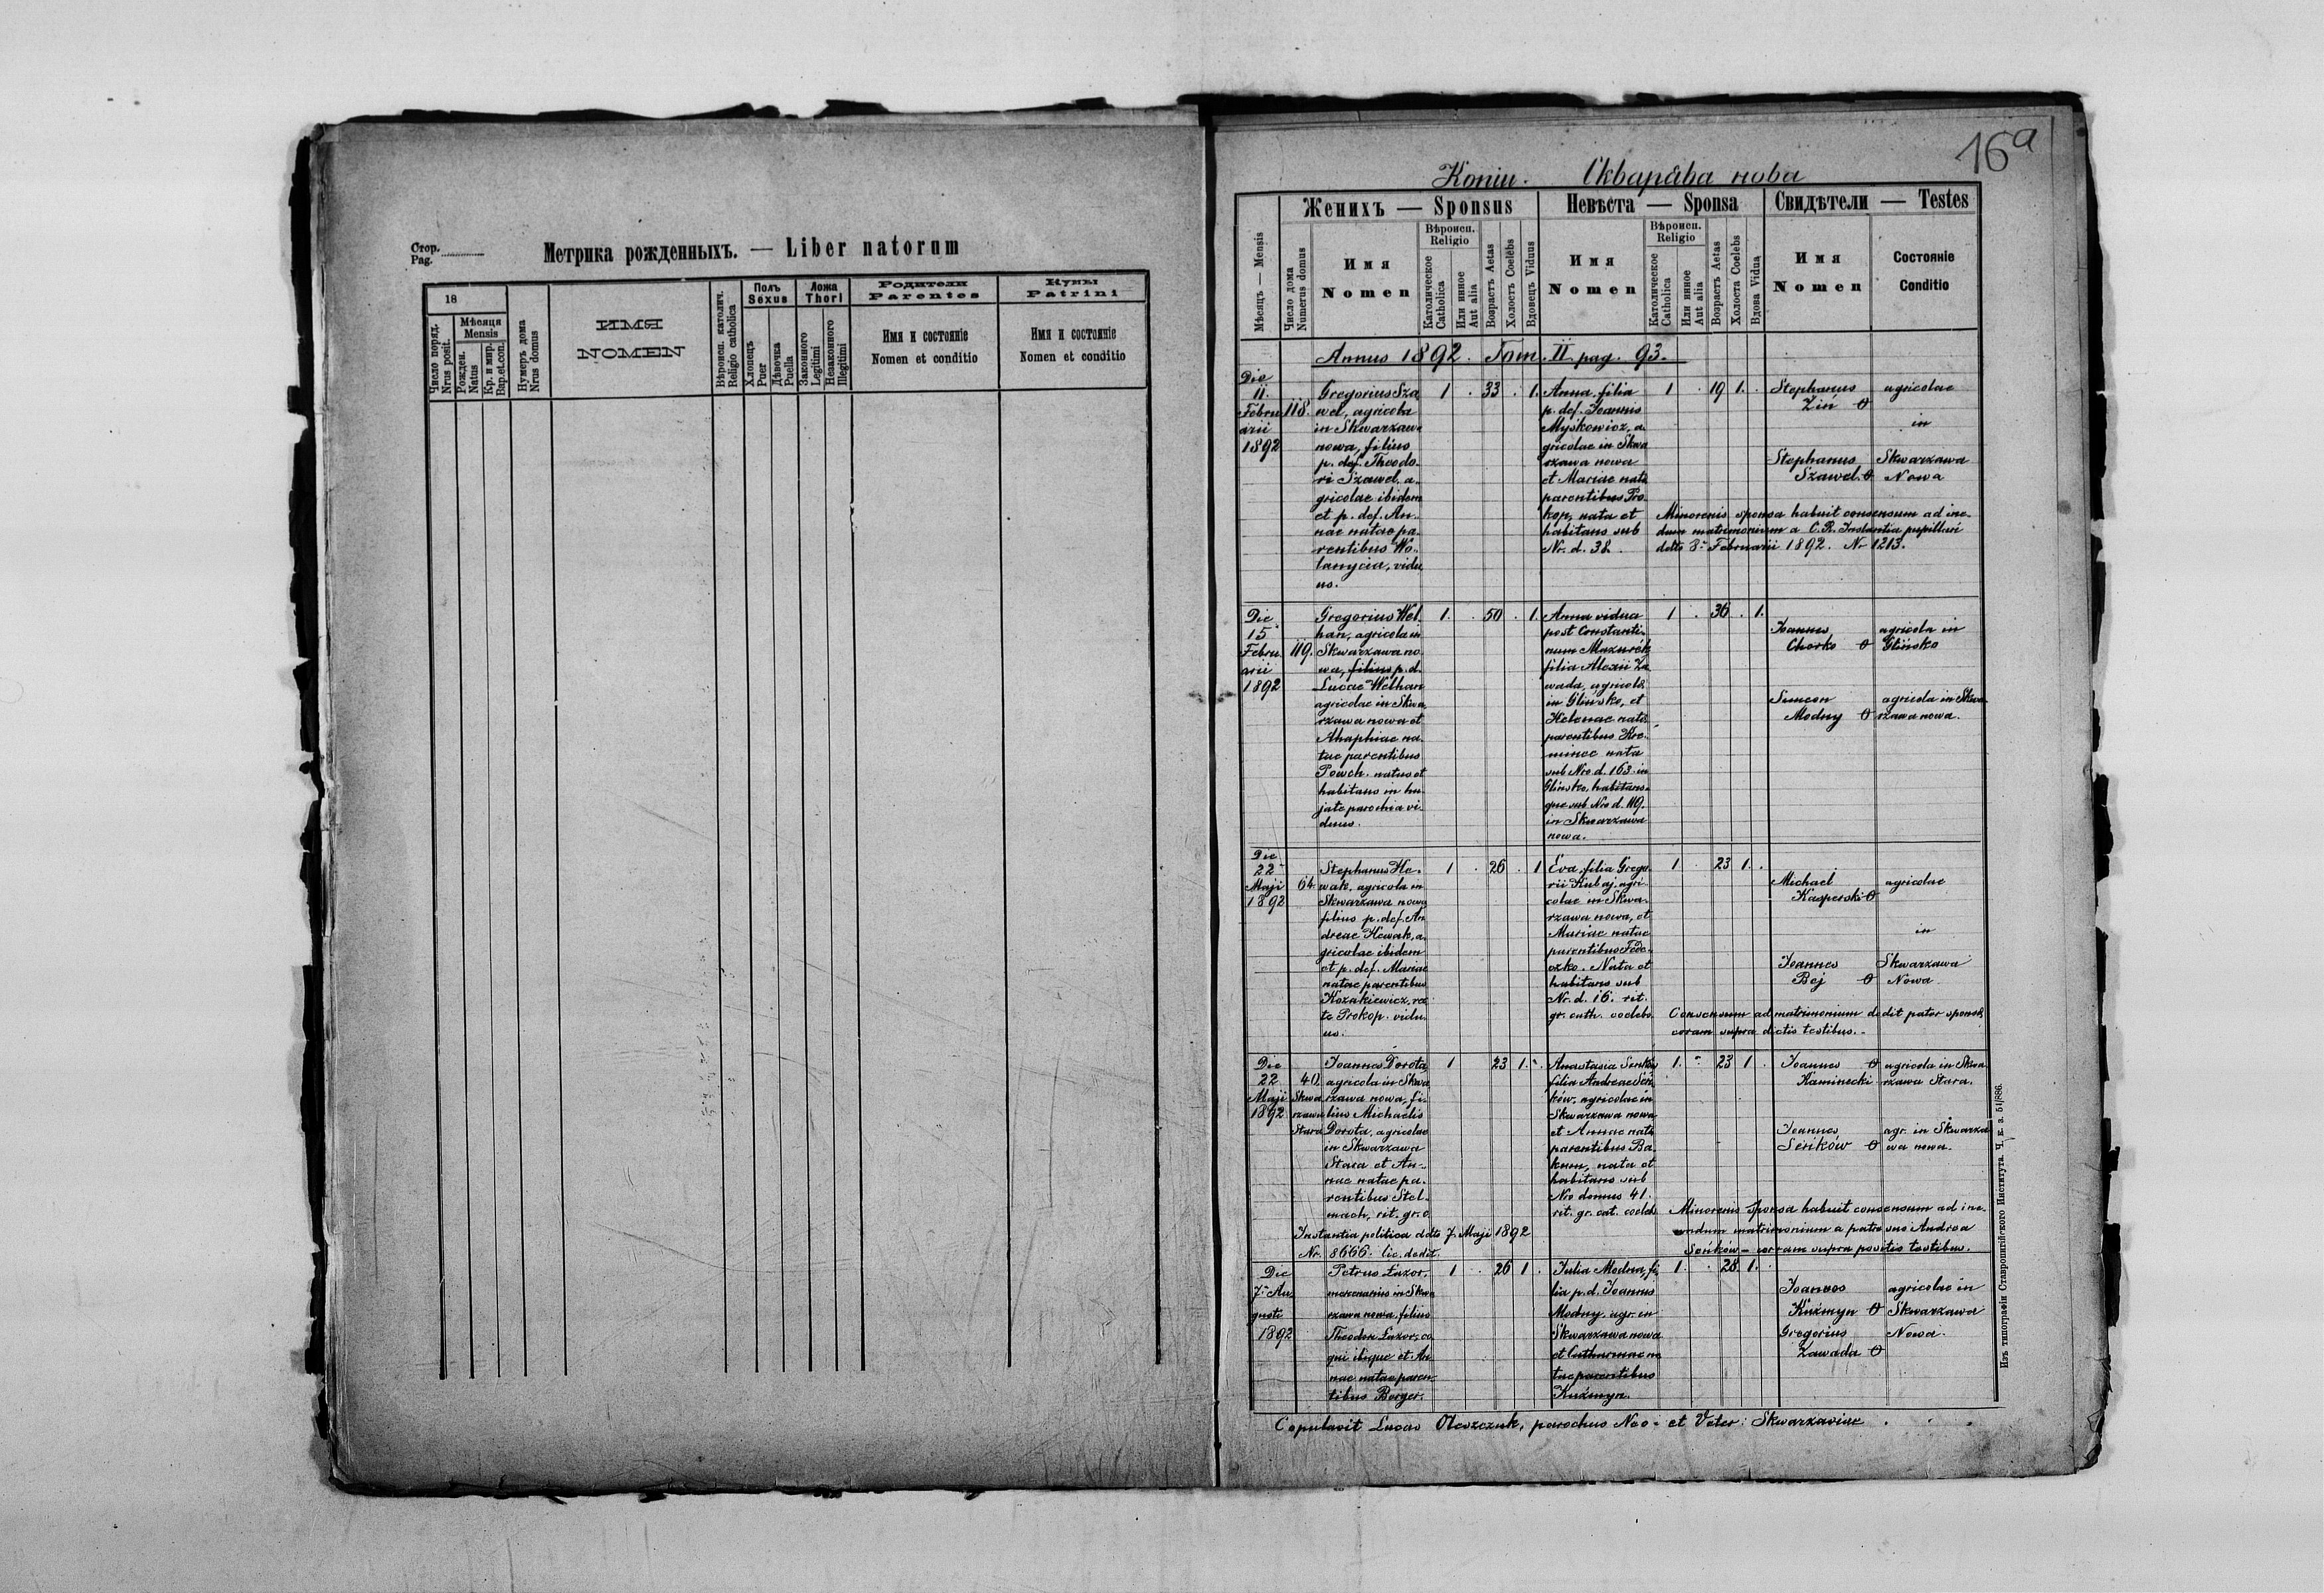 Стор.
Pag.
Метрика рожденныхъ. — Liber natorum
18
Число поряд.
Nrus posit.
Мѣсяця
Mensis
Рожден.
Natus
Кр. и мир.
Bap.et.con.
Нумеръ дома
Nrus domus
ИМЯ
NOMEN
Вѣроисп. католич.
Religio catholica
Полъ
Sexus
Хлопецъ
Puer
Дѣвочка
Puella
Ложа
Thori
Законного
Legitimi
Незаконного
Illegitimi
Родители
Parentes
Имя и состояніе
Nomen et conditio
Кумы
Patrini
Имя и состояніе
Nomen et conditio
16a
Копіи. Скварѣва нова
Женихъ — Sponsus
Невѣста — Sponsa
Свидѣтели — Testes
Мѣсяцъ — Mensis
Число дома
Numerus domus
Имя
Nomen
Вѣроисп.
Religio
Католическое
Catholica
Или инное
Aut alia
Возрастъ Aetas
Холостъ Coelebs
Вдовецъ Viduus
Имя
Nomen
Вѣроисп.
Religio
Католическое
Catholica
Или инное
Aut alia
Возрастъ Aetas
Холоста Coelebs
Вдова Vidua
Имя
Nomen
Состояніе
Conditio
Annus 1892. Tom. II pag. 93.
Die
11.
Febru
arii
1892
118.
Gregorius Sza
wel, agricola
in Skwarzawa
nowa, filius
p. def. Theodo-
ri Szawel, a-
gricolae ibidem
et p. def. An-
nae natae pa-
rentibus Wo-
lanycia, vidu
us.
1 . 33 . 1.
Anna, filia
p. def. Joannis
Myskowicz, a-
gricolae in Skwa
rzawa nowa
et Mariae nata
parentibus Pro
kop, nata et
habitans sub
Nr. d. 38.
1 . 19 1.
Stephanus
Ziń
Stephanus
Szawel.
agricolae
in
Skwarzawa
Nowa
Minorenis sponsa habuit consensum ad ine-
dum matrimonium a C. R. Instantia pupillari
ddto 8. Februarii 1892. Nr 1213.
Die
15
Febru
arii
1892
119.
Gregorius Wel
han, agricola in
Skwarzawa no
wa, filius p. d.
Lucae Welhan
agricolae in Skwa
rzawa nowa et
Ahaphiae na
tae parentibus
Pewch. natus et
habitans in hu
jate parochia vi
duus.
1. . 50 . 1.
Anna vidua
post Constanti-
num Mazurek
filia Alexii Za
wada, agricolae
in Glińsko, et
Helenae nata
parentibus Kre-
minec nata
sub Nro d. 163 in
Glinsko, habitans-
que sub Nro d. 119.
in Skwarzawa
nowa.
1 . 36 . 1.
Joannes
Chorko
Simeon
Modny
agricola in
Glińsko
agricola in Skwa
rzawa nowa.
Die
22
Maji
1892
64.
Stephanus He-
wak, agricola in
Skwarzawa nowa
filius p. def. An
dreae Hewak, a-
gricolae ibidem
et p. def. Mariae
natae parentibus
Kozakiewicz, rec
te Prokop. vidu
us.
1 . 26 . 1
Eva, filia Grego-
rii Kubaj, agri-
colae in Skwa-
rzawa nowa, et
Mariae natae
parentibus Fede-
czko. Nata et
habitans sub
Nr. d. 16. rit.
gr. cath. coelebs.
1 . 23 1.
Michael
Kasperski
Joannes
Bej
agricolae
in
Skwarzawa
Nowa
Consensum ad matrimonium dedit pater sponsae
coram supra dictis testibus.
Die
22
Maji
1892
40.
Skwa
rzawa
Stara
Joannes Dorota
agricola in Skwa
rzawa nowa, fi-
lius Michaelis
Dorota, agricolae
in Skwarzawa
Stara et An-
nae natae pa-
rentibus Stel-
mach, rit. gr. c.
1 23 1.
Anastasia Seńków
filia Andreae Seń
ków, agricolae in
Skwarzawa nowa
et Annae nata
parentibus Ba-
kun, nata et
habitans sub
Nro domus 41.
rit. gr. cat. coelebs
1. 23 1 .
Joannes
Kaminecki
Joannes
Seńków
agricola in Skwa
rzawa Stara.
agr. in Skwarza
wa nowa.
Instantia politica ddto 7. Maji 1892
Nr. 8666. lic. dedit.
Minorenis sponsa habuit consensum ad ine-
undum matrimonium a patre suo Andrea
Seńków - corram supra positis testibus.
Die
7. Au
gusti
1892
Petrus Łazor,
mercenarius in Skwa
rzawa nowa, filius
Theodori Łazor, co
qui ibique et An
nae natae paren-
tibus Berger.
1 . 26 1 .
Julia Modna, fi
lia p. d. Joannis
Modny, agr. in
Skwarzawa nowa
et Catharinae na
tae parentibus
Kuźmyn.
1. . 28. 1.
Joannes
Kuźmyn
Gregorius
Zawada
agricolae in
Skwarzawa
Nowa.
Copulavit Lucas Oleszczuk, parochus Neo- et Veter: Skwarzaviae
Изъ типографіи Ставропигійского Института. Ч. к. з. 51/886.